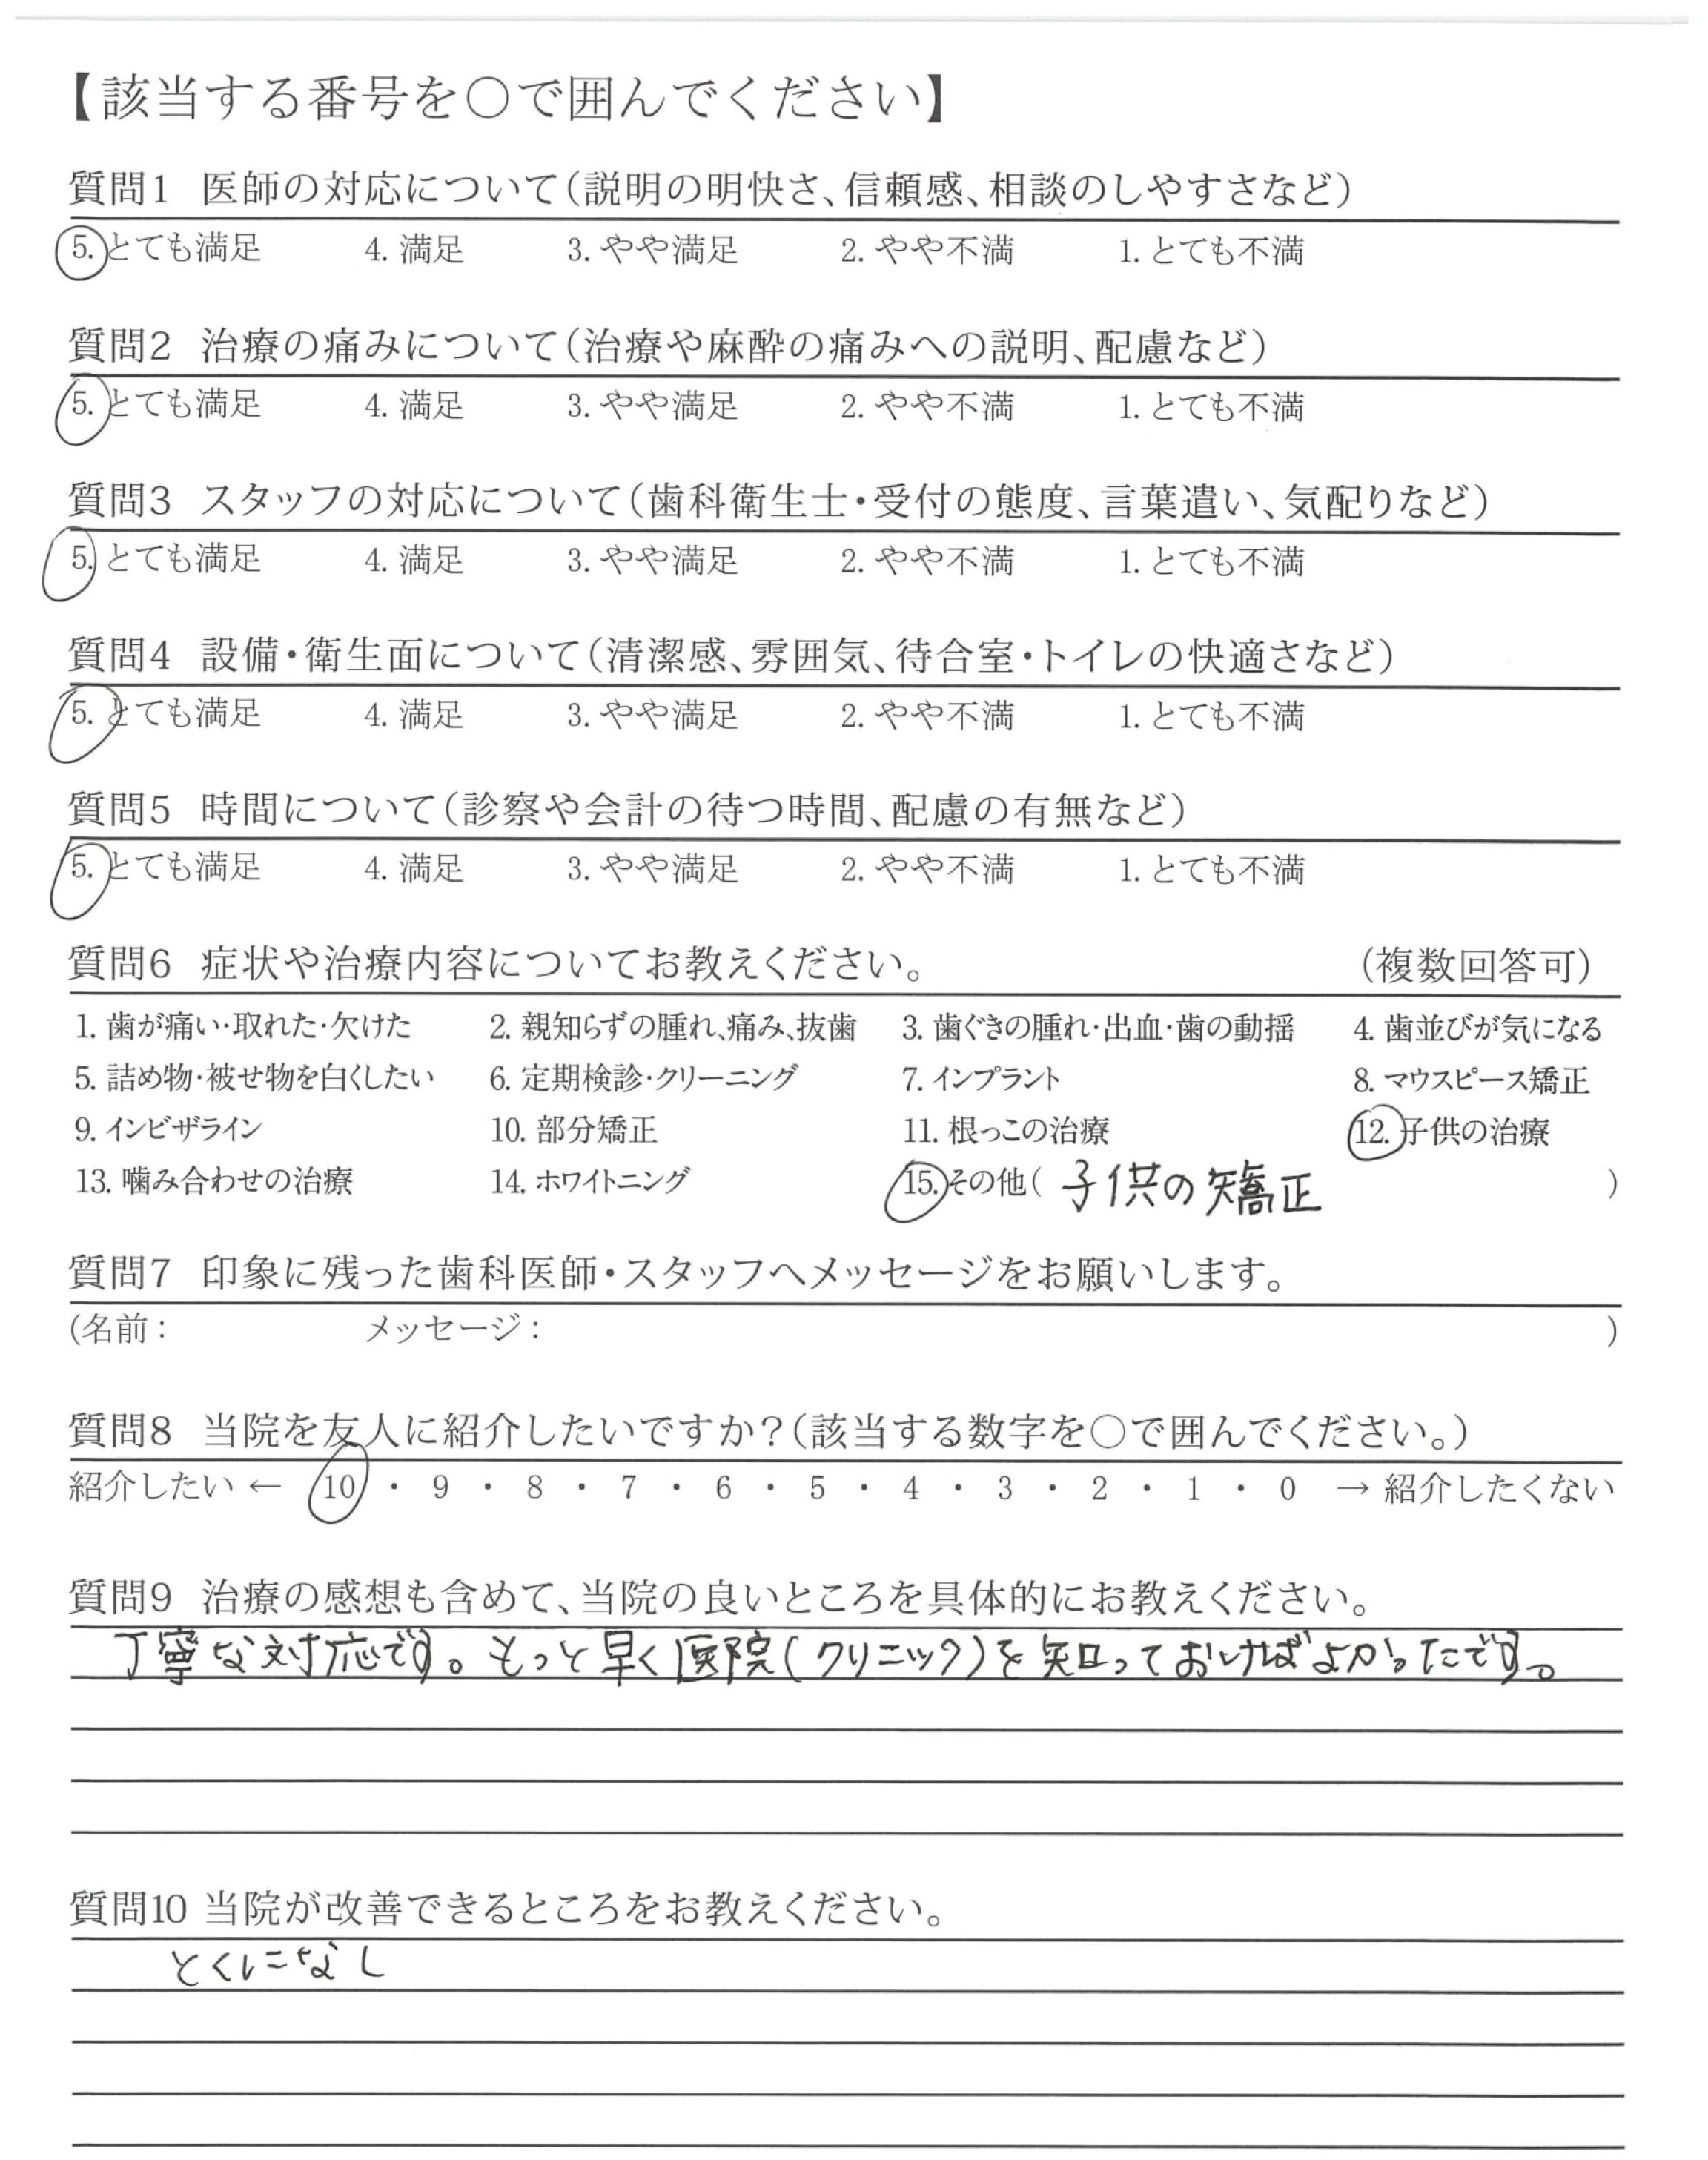 【該当する番号を○で囲んでください】
質問1 医師の対応について(説明の明快さ、信頼感、相談のしやすさなど)
5. とても満足 4. 満足 3. やや満足 2. やや不満 1. とても不満
質問2 治療の痛みについて(治療や麻酔の痛みへの説明、配慮など)
5. とても満足 4. 満足 3. やや満足 2. やや不満 1. とても不満
質問3 スタッフの対応について(歯科衛生士・受付の態度、言葉遣い、気配りなど)
5. とても満足 4. 満足 3. やや満足 2. やや不満 1. とても不満
質問4 設備・衛生面について(清潔感、雰囲気、待合室・トイレの快適さなど)
5. とても満足 4. 満足 3. やや満足 2. やや不満 1. とても不満
質問5 時間について(診察や会計の待つ時間、配慮の有無など)
5. とても満足 4. 満足 3. やや満足 2. やや不満 1. とても不満
質問6 症状や治療内容についてお教えください。 (複数回答可)
1. 歯が痛い・取れた・欠けた 2. 親知らずの腫れ、痛み、抜歯 3. 歯ぐきの腫れ・出血・歯の動揺 4. 歯並びが気になる
5. 詰め物・被せ物を白くしたい 6. 定期検診・クリーニング 7. インプラント 8. マウスピース矯正
9. インビザライン 10. 部分矯正 11. 根っこの治療 12. 子供の治療
13. 噛み合わせの治療 14. ホワイトニング 15. その他( 子供の矯正 )
質問7 印象に残った歯科医師・スタッフへメッセージをお願いします。
(名前: メッセージ: )
質問8 当院を友人に紹介したいですか?(該当する数字を○で囲んでください。)
紹介したい ← 10 ・ 9 ・ 8 ・ 7 ・ 6 ・ 5 ・ 4 ・ 3 ・ 2 ・ 1 ・ 0 → 紹介したくない
質問9 治療の感想も含めて、当院の良いところを具体的にお教えください。
丁寧な対応です。もっと早く医院(クリニック)を知っておければよかったです。
質問10 当院が改善できるところをお教えください。
とくになし